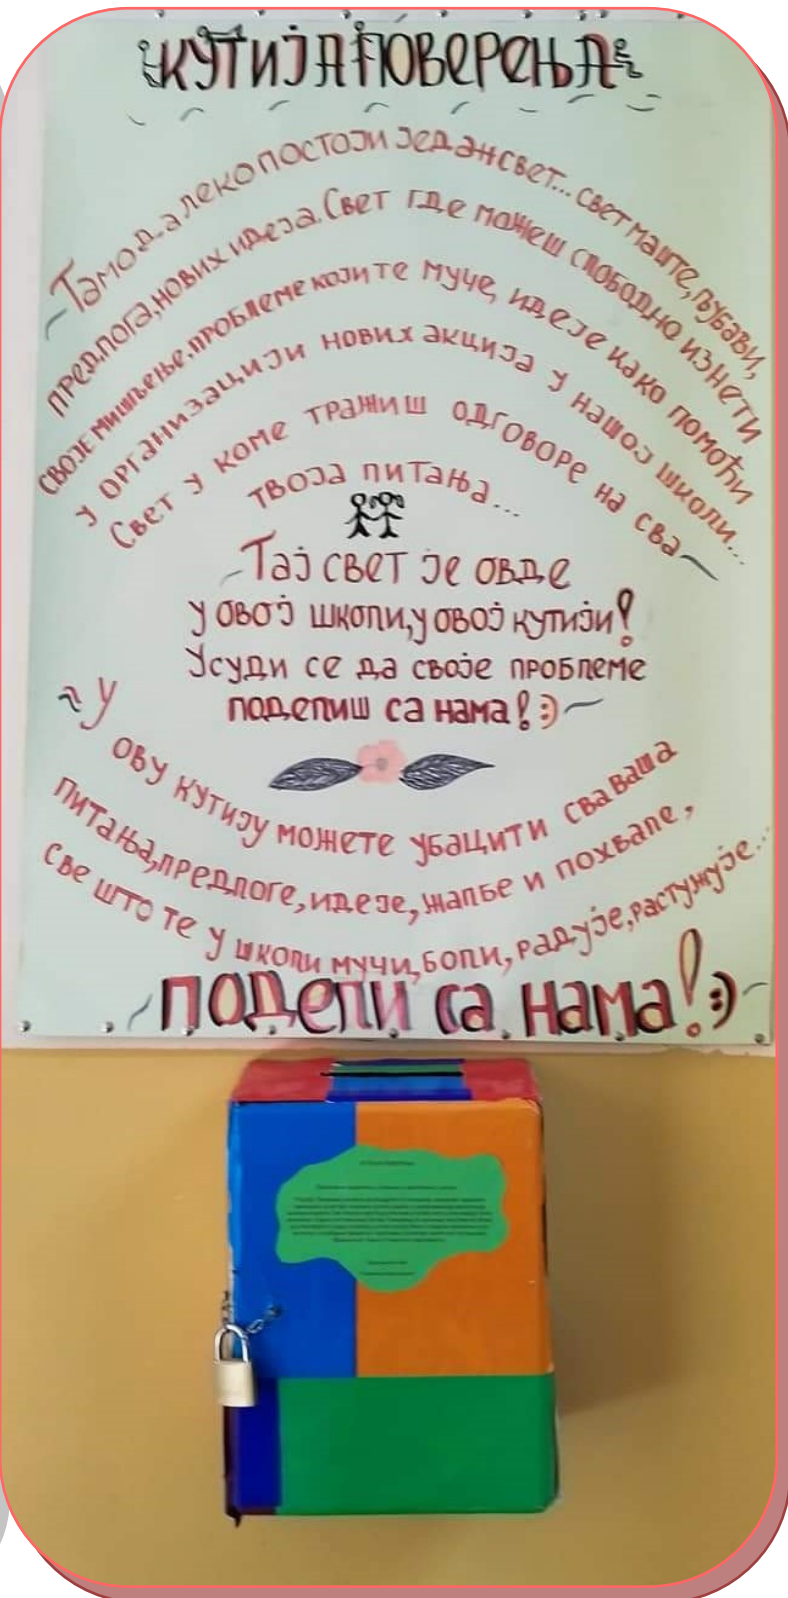 КУТИЈА ПОВЕРЕЊА
Тамо далеко постоји један свет... свет маште, љубави,
предлога, нових идеја. Свет где можеш слободно изнети
своје мишљење, проблеме који те муче, идеје како помоћи
у организацији нових акција у нашој школи...
Свет у коме тражиш одговоре на сва
твоја питања...
Тај свет је овде
у овој школи, у овој кутији!
Усуди се да своје проблеме
поделиш са нама! :)
У
ову кутију можете убацити сва ваша
питања, предлоге, идеје, жалбе и похвале,
све што те у школи мучи, боли, радује, растужује...
ПОДЕЛИ са нама! :)